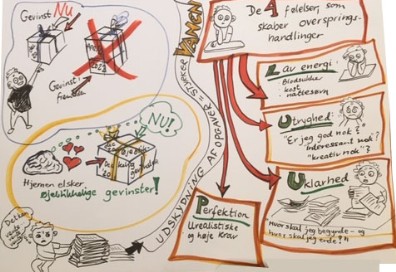 Gevinst NU
Gevinst i
NU!
Hjernen elsker
øjeblikkelige gevinster!
UDSKYDNING AF OPGAVER STYRKER
VANEN
De 4 følelser, som
skaber oversprings-
handlinger
Lav energi:
Blodsukker
kost
nattesøvn
Utryghed:
"Er jeg god nok?"
interessant nok?
"kreativ nok"?
Uklarhed
Hvor skal jeg begynde - og
hvor skal jeg ende?"
Perfektion
Urealistiske
og høje krav